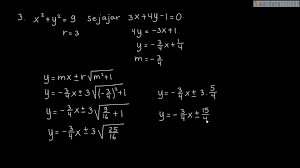 3. x² + y² = 9 sejajar 3x + 4y - 1 = 0
r = 3
4y = -3x + 1
y = -3/4 x + 1/4
m = -3/4
y = mx ± r√(m² + 1)
y = -3/4 x ± 3√((-3/4)² + 1)
y = -3/4 x ± 3√(9/16 + 1)
y = -3/4 x ± 3√(25/16)
y = -3/4 x ± 3 . 5/4
y = -3/4 x ± 15/4